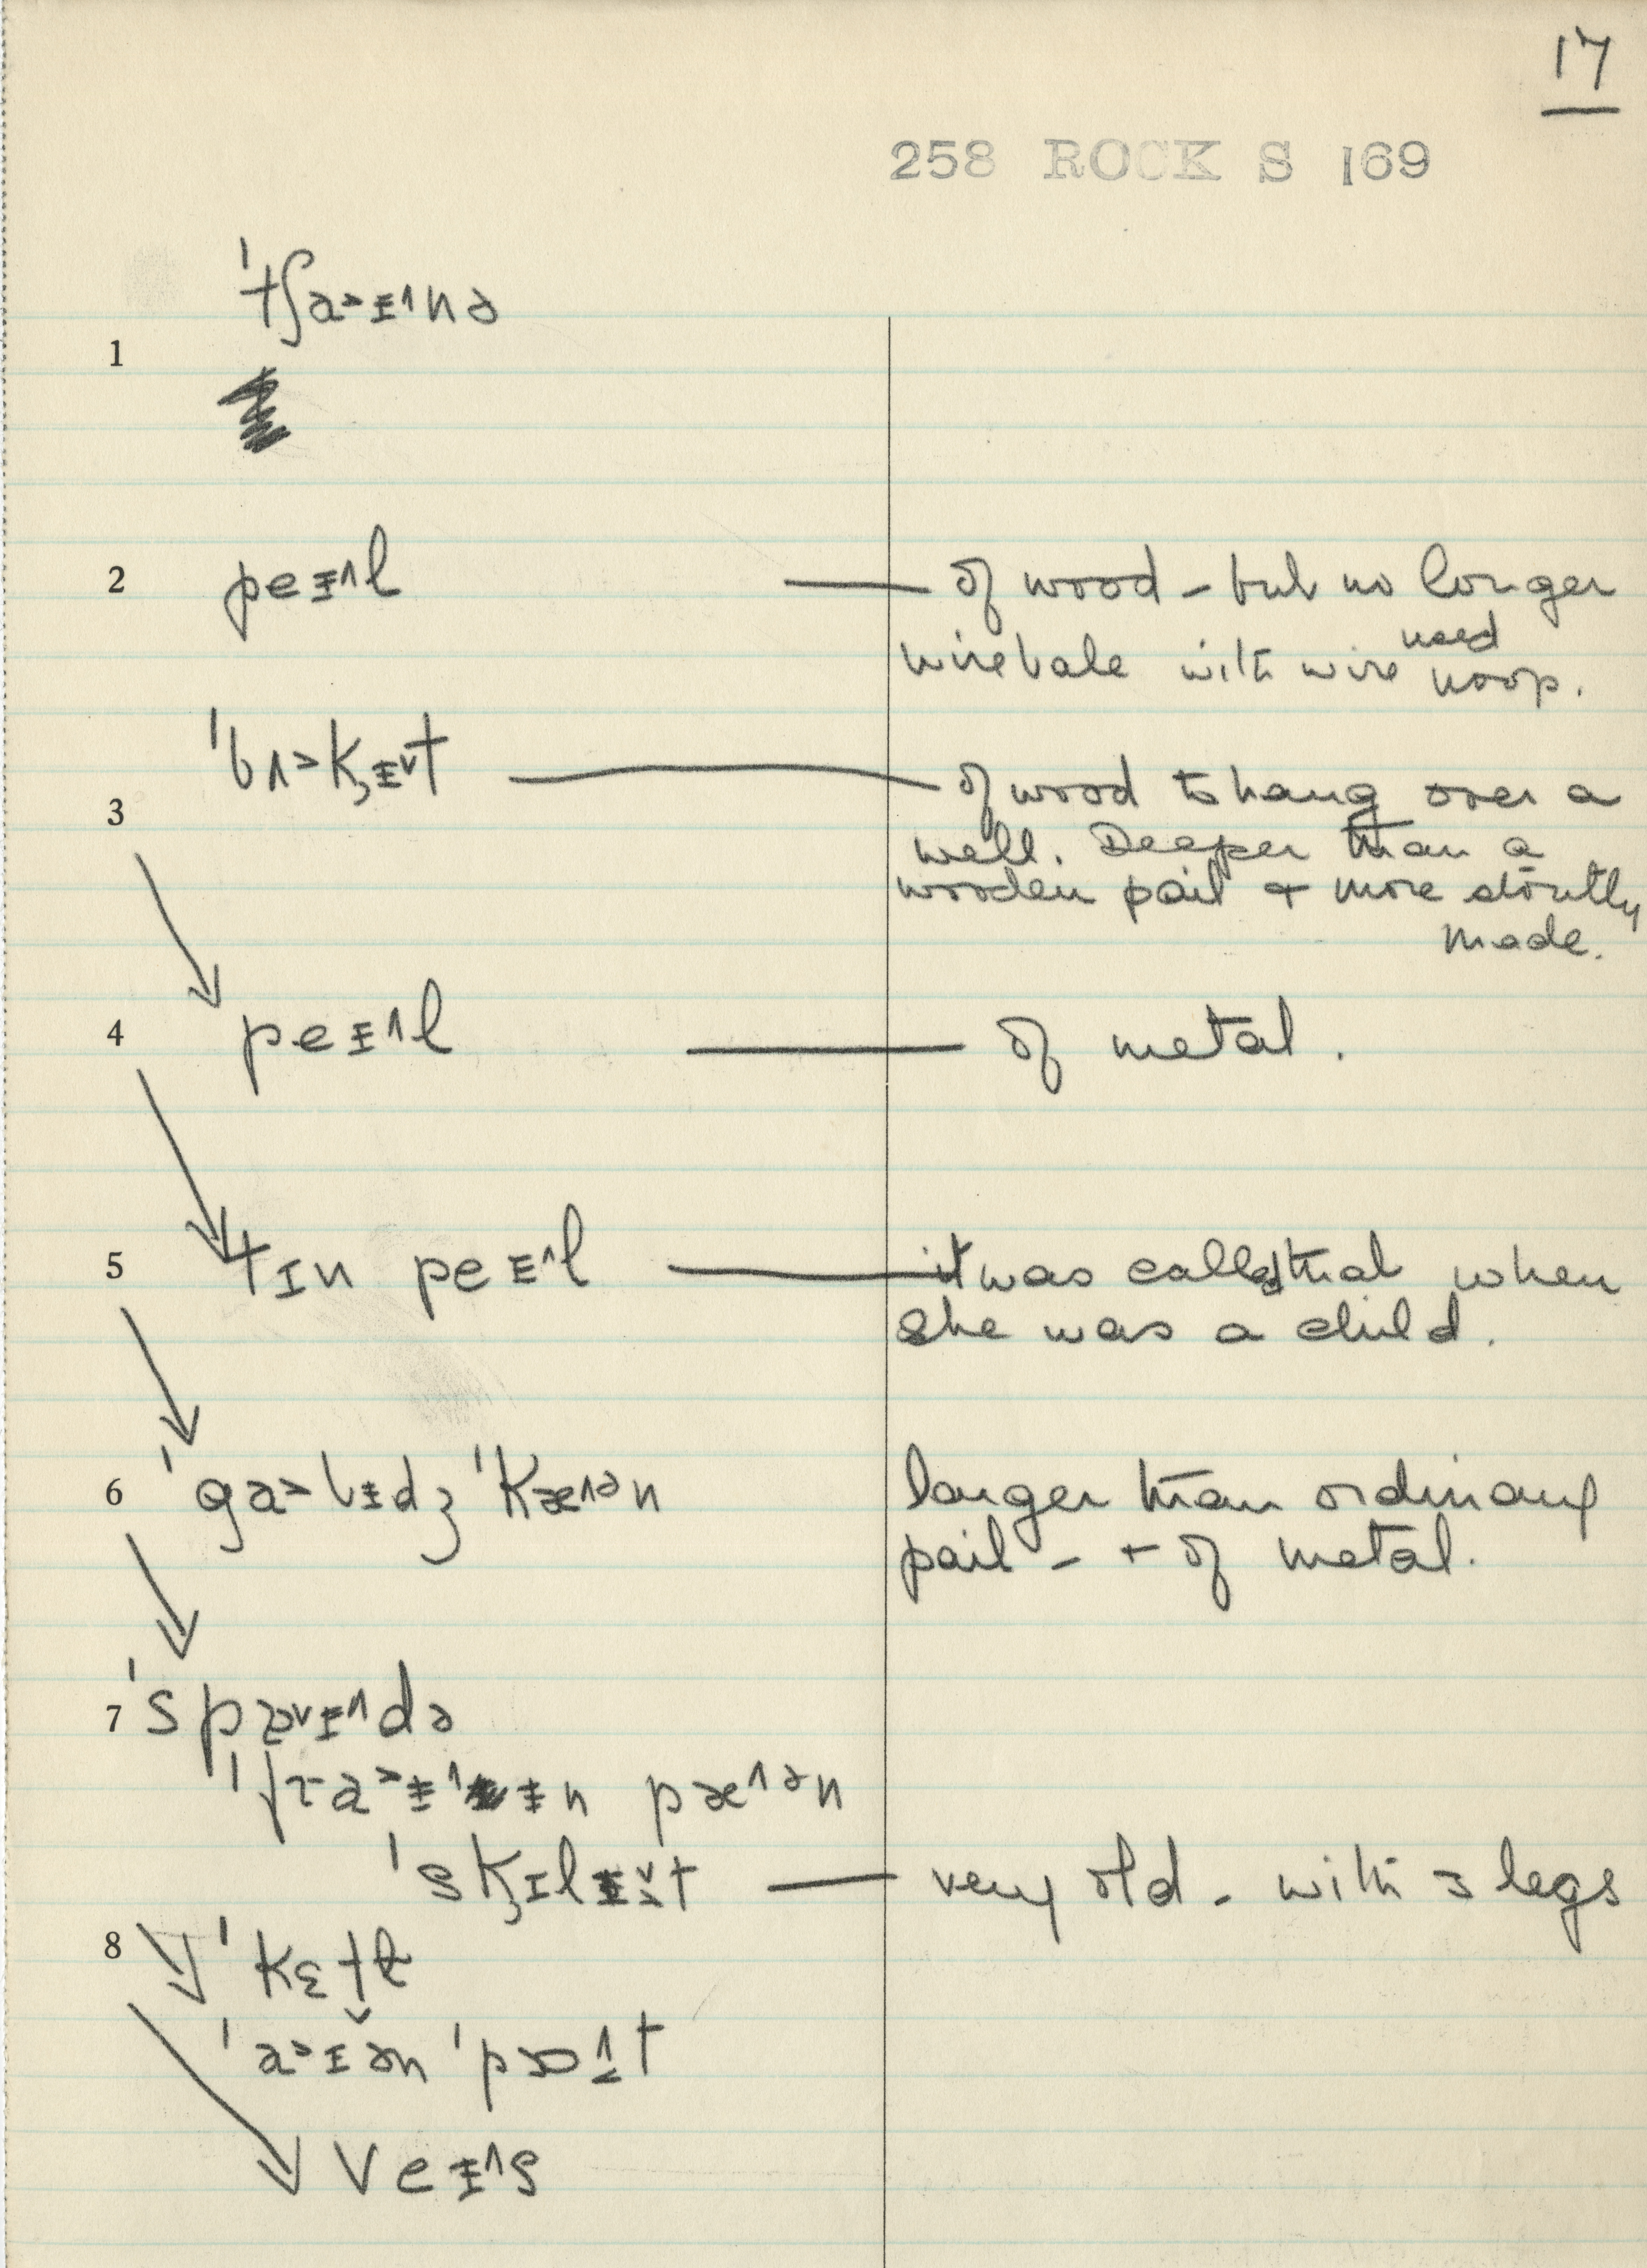 17
258 ROCK S 169
1 ˈtʃa˃ɪ̵˄nə
2 peɪ̵˄l — of wood - but no longer
used
wire bale with wire hoop.
3 ˈbʌ˃k̡ɪ̵˅t — of wood to hang over a
well. Deeper than a
wooden pail + more stoutly
made.
4 peɪ̵˄l — of metal.
5 tɪn peɪ̵˄l — it was called that when
she was a child.
6 ˈga˃bɪ̵dʒ ˈkæ˄ᵊn larger than ordinary
pail - + of metal.
7 ˈspaɪ̵˄də
ˈfra˃ɪ̵˄ɪ̵n pæ˄ᵊn
ˈsk̡ɪlɪ̵˅t — very old - with 3 legs
8 ˈkɛtɫ
ˈa˃ɪən ˈpɒt
veɪ̵˄s